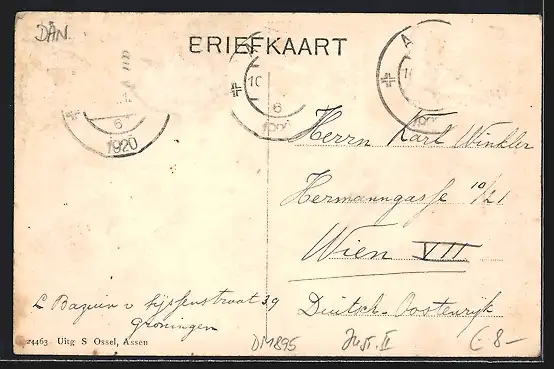 DÄN.
ERIEFKAART
10
6
1920
6
1920
Herrn Karl Winkler
Hermanngasse 10/21
Wien VII
Duitsch-Oostenrijk
L Bazuin v Sijssenstraat 39
Groningen
24463 Uitg S Ossel, Assen
DM895
€ 8-